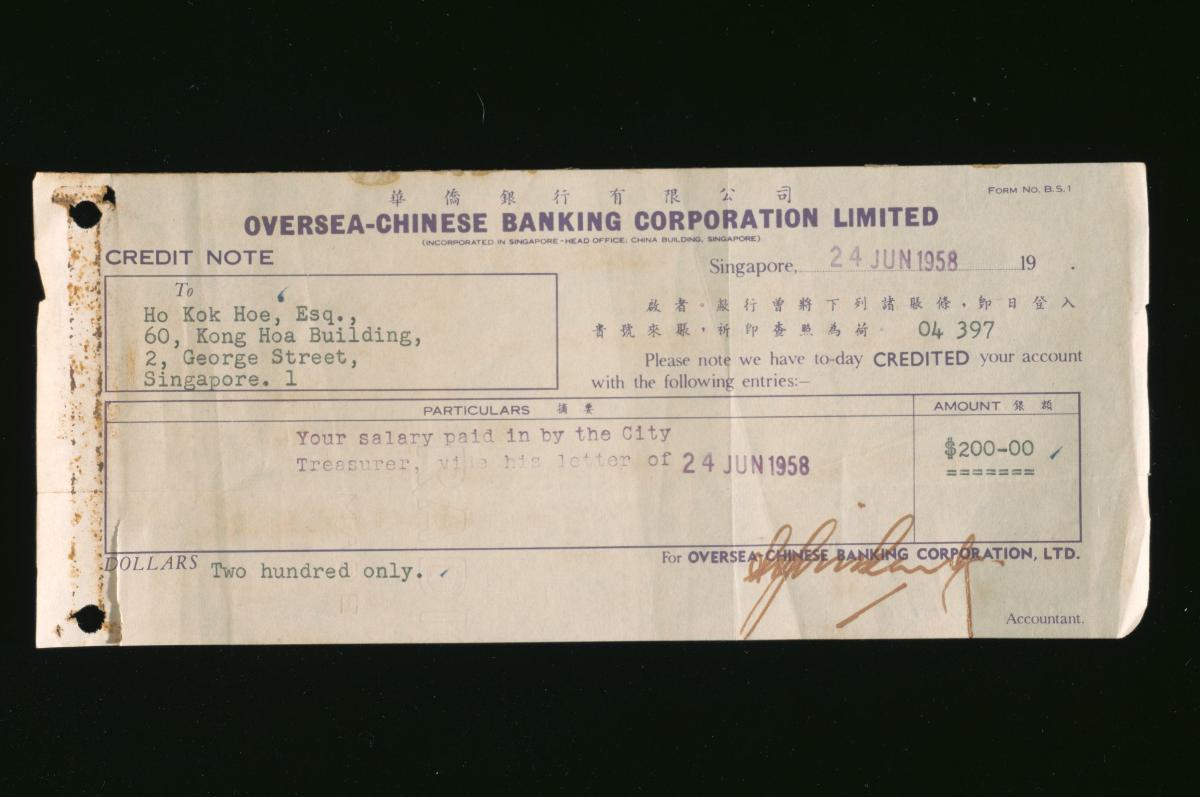 華僑銀行有限公司
FORM NO. B.S.1
OVERSEA-CHINESE BANKING CORPORATION LIMITED
(INCORPORATED IN SINGAPORE - HEAD OFFICE: CHINA BUILDING, SINGAPORE)
CREDIT NOTE
Singapore, 24 JUN 1958 19 .
To
Ho Kok Hoe, Esq.,
60, Kong Hoa Building,
2, George Street,
Singapore. 1
啟者。敝行曾將下列諸賬條，即日登入
貴號來賬，祈即查照為荷. 04 397
Please note we have to-day CREDITED your account
with the following entries:—
PARTICULARS 摘要
AMOUNT 銀額
Your salary paid in by the City
Treasurer, vide his letter of 24 JUN 1958
$200-00
=======
DOLLARS Two hundred only.
For OVERSEA-CHINESE BANKING CORPORATION, LTD.
Accountant.